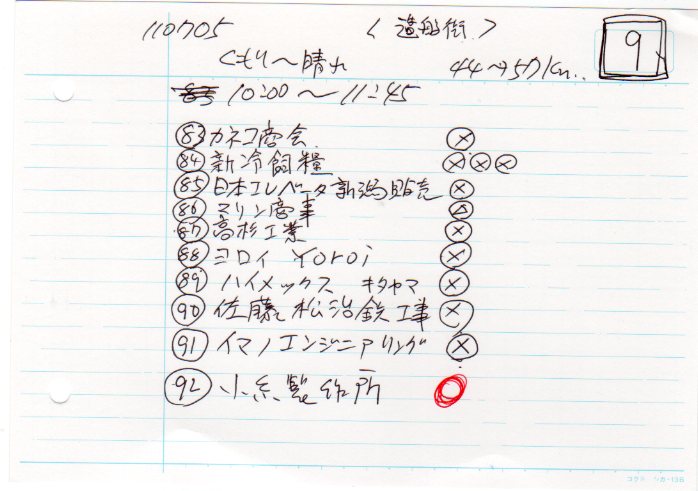 110705 〈造船街〉 9
くもり〜晴れ 44→57Km..
10:00〜11:45
83 カネコ商会 ⓧ
84 新冷飼糧 ⓧⓧⓧ
85 日本エレベータ新潟販売 ⓧ
86 マリン商事
87 高杉工業 ⓧ
88 ヨロイ Yoroi ⓧ
89 ハイメックス キタヤマ ⓧ
90 佐藤松治鉄工事 ⓧ
91 イマノエンジニアリング ⓧ
92 小糸製作所 ◯
コクヨ シカ-13S